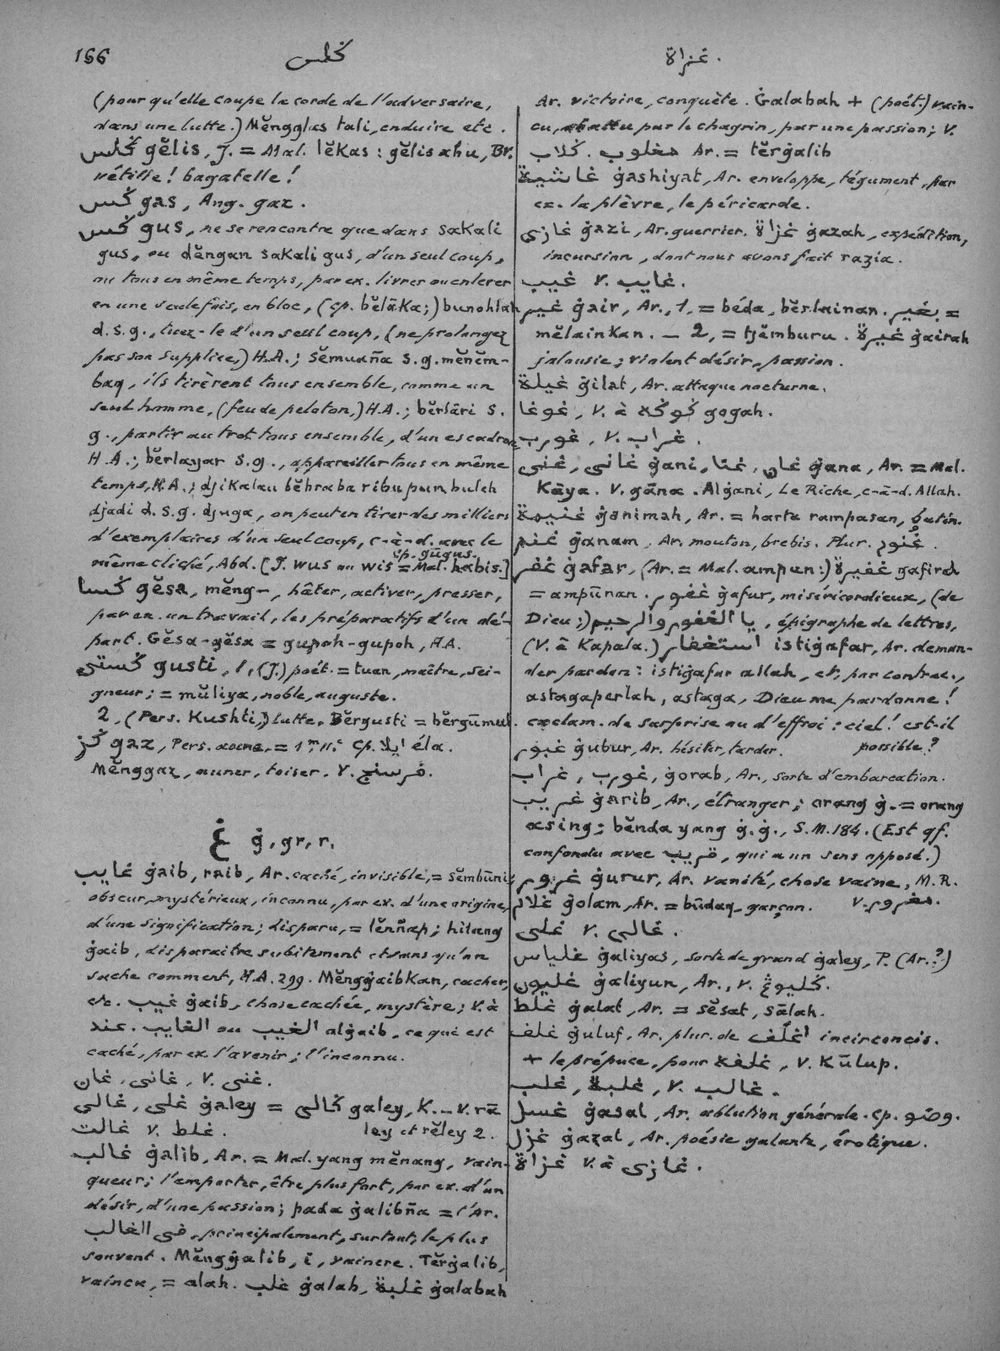 166
غزاة.
(pour qu'elle coupe la corde de l'adversaire,
dans une lutte.) Mĕngglas tali, enduire etc.
ݢليس gĕlis, J. = Mal. lĕkas: gĕlis ahu, Br.
vétille! bagatelle!
ݢس gas, Ang. gaz.
ݢس gus, ne se rencontre que dans sakali
gus, ou dĕngan sakali gus, d'un seul coup,
ou tous en même temps, par ex. livrer ou enlever
en une seule fois, en bloc, (cp. bĕlaka;) bunohlah
d. s. g., tuez-le d'un seul coup, (ne prolongez
pas son supplice,) H.A.; sĕmuaña s.g. mĕnĕm-
baq, ils tirèrent tous ensemble, comme un
seul homme, (feu de peloton,) H.A.; bĕrlāri s.
g., partir au trot tous ensemble, d'un escadron,
H.A.; bĕrlayar s.g., appareiller tous en même
temps, H.A.; djikalau bĕhraba ribu pun buleh
djadi d. s. g. djuga, on peut en tirer des milliers
d'exemplaires d'un seul coup, c-à-d. avec le
même cliché, Abd. [J. wus ou wis = Mal. habis.]
cp. gūgus.
ݢسا gĕsa, mĕng-, hâter, activer, presser,
par ex. un travail, les préparatifs d'un dé-
part. Gĕsa-gĕsa = gupoh-gupoh, H.A.
ݢستي gusti, 1, (J.) poét. = tuan, maître, sei-
gneur; = mŭliya, noble, auguste.
2, (Pers. Kushti,) lutte. Bĕrgusti = bĕrgūmul.
ݢز gaz, Pers. aune, = cp. ايلا éla.
Mĕnggaz, auner, toiser. V. فرسنج.
غ ġ, gr, r.
غايب ġaib, raib, Ar. caché, invisible, = sĕmbūni;
obscur, mystérieux, inconnu, par ex. d'une origine,
d'une signification; disparu, = lĕññap; hilang
ġaib, disparaitre subitement et sans qu'on
sache comment, H.A. 299. Mĕngġaibkan, cacher,
etc. غيب ġaib, chose cachée, mystère; V. à
عند. الغيب ou الغايب alġaib, ce qui est
caché, par ex. l'avenir; l'inconnu.
غني. V. غاني, غان.
غلي, غالي ġaley = ݢالي galey, K. _ V. rā
ley et rĕley 2.
غالت V. غلط.
غالب ġalib, Ar. = Mal. yang mĕnang, vain-
queur; l'emporter, être plus fort, par ex. d'un
désir, d'une passion; pada ġalibña = l'Ar.
في الغالب, principalement, surtout, le plus
souvent. Mĕngġalib, i, vaincre. Tĕrġalib,
vaincu, = alah. غلب ġalab, غلبة ġalabah
Ar. victoire, conquète. Ġalabah + (poét.) vain-
cu, abattu par le chagrin, par une passion; V.
ݢلاب. مغلوب Ar. = tĕrġalib
غاشية ġashiyat, Ar. enveloppe, tégument, par
ex. la plèvre, le péricarde.
غازي ġazi, Ar. guerrier. غزاة ġazah, expédition,
incursion, dont nous avons fait razia.
غيب V. غايب.
غير ġair, Ar., 1, = béda, bĕrlainan. بغير =
mĕlainkan. _ 2, = tjĕmburu. غيرة ġairah
jalousie; violent désir, passion.
غيلة ġilat, Ar. attaque nocturne.
غوغا, V. à gogah.
غورب, V. غراب.
غني, غاني ġani, غنا, غان ġana, Ar. = Mal.
Kāya. V. gāna. Alġani, Le Riche, c-à-d. Allah.
غنيمة ġanimah, Ar. = harta rampasan, butin.
غنم ġanam, Ar. mouton, brebis. Plur. غنور.
غفر ġafar, (Ar. = Mal. ampun:) غفيرة ġafirah
= ampūnan. غفور ġafur, miséricordieux, (de
Dieu;) يا الغفور والرحيم, épigraphe de lettres,
(V. à Kapala.) استغفار istiġafar, Ar. deman-
der pardon: istiġafar allah, et, par contrac.,
astagaperlah, astaga, Dieu me pardonne!
exclam. de surprise ou d'effroi: ciel! est-il
possible?
غبور ġubur, Ar. hésiter, tarder.
غراب, غورب, ġorab, Ar., sorte d'embarcation.
غريب ġarib, Ar., étranger; orang ġ. = orang
asing; bĕnda yang ġ. ġ., S.M. 184. (Est qf.
confondu avec قريب, qui a un sens opposé.)
غرور ġurur, Ar. vanité, chose vaine, M.R.
V. مغرور.
غلام ġolam, Ar. = būdaq, garçon.
غلي V. غالي.
غلياس ġaliyas, sorte de grand ġaley, P. (Ar.?)
غليون ġaliyun, Ar., V. ݢليوڠ.
غلط ġalat, Ar. = sĕsat, sālah.
غلف ġuluf, Ar. plur. de اغلف incirconcis.
+ le prépuce, pour غلفه, V. Kūlup.
غلب, غلبة, V. غالب.
غسل ġasal, Ar. ablution générale. Cp. وضو.
غزل ġazal, Ar. poésie galante, érotique.
غزاة V. à غازي.